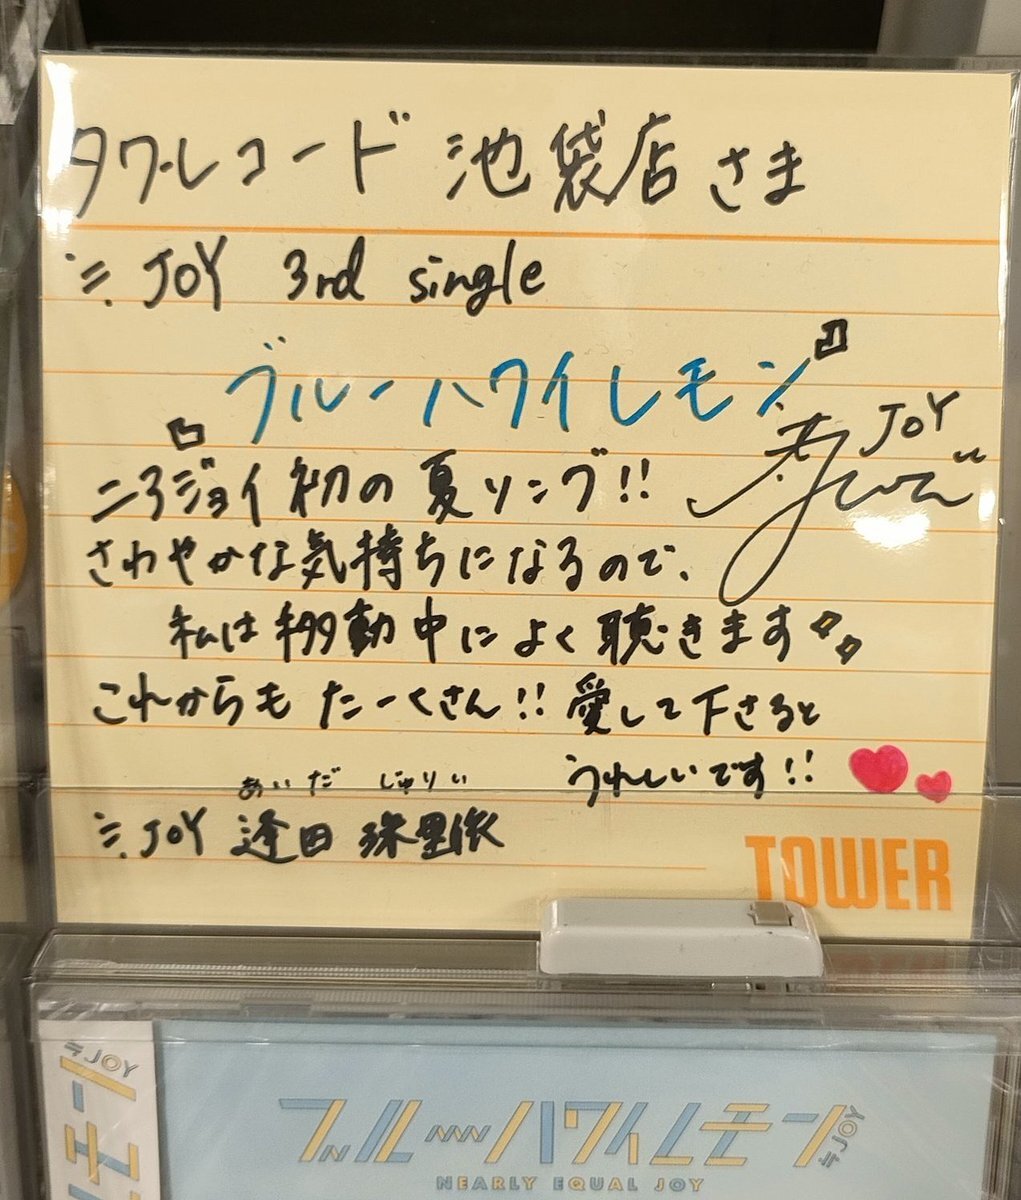 タワーレコード 池袋店さま
≒JOY 3rd single
「ブルーハワイレモン」
ニアジョイ初の夏ソング!!
さわやかな気持ちになるので、
私は移動中によく聴きます
これからもたーくさん!! 愛して下さると
うれしいです!!
あいだ じゅりい
≒JOY 逢田 珠里依
JOY
TOWER
≒JOY
ブルーハワイレモン
≒JOY
NEARLY EQUAL JOY